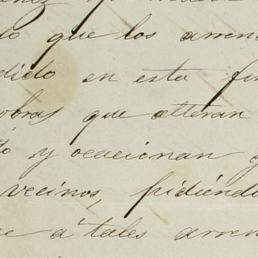 que los arren
dido en esta fin
obras que alteran
y ocacionan
vecinos, pidiendo
á tales arren